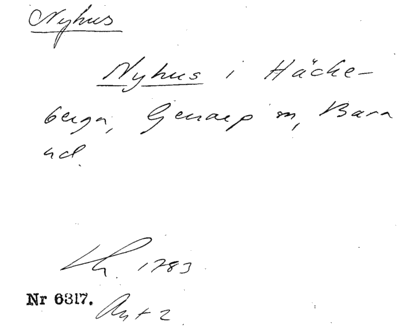 Nyhus
Nyhus i Häcke-
berga, Genarp sn, Bara
hd.
Kh. 1783
Nr 6317.